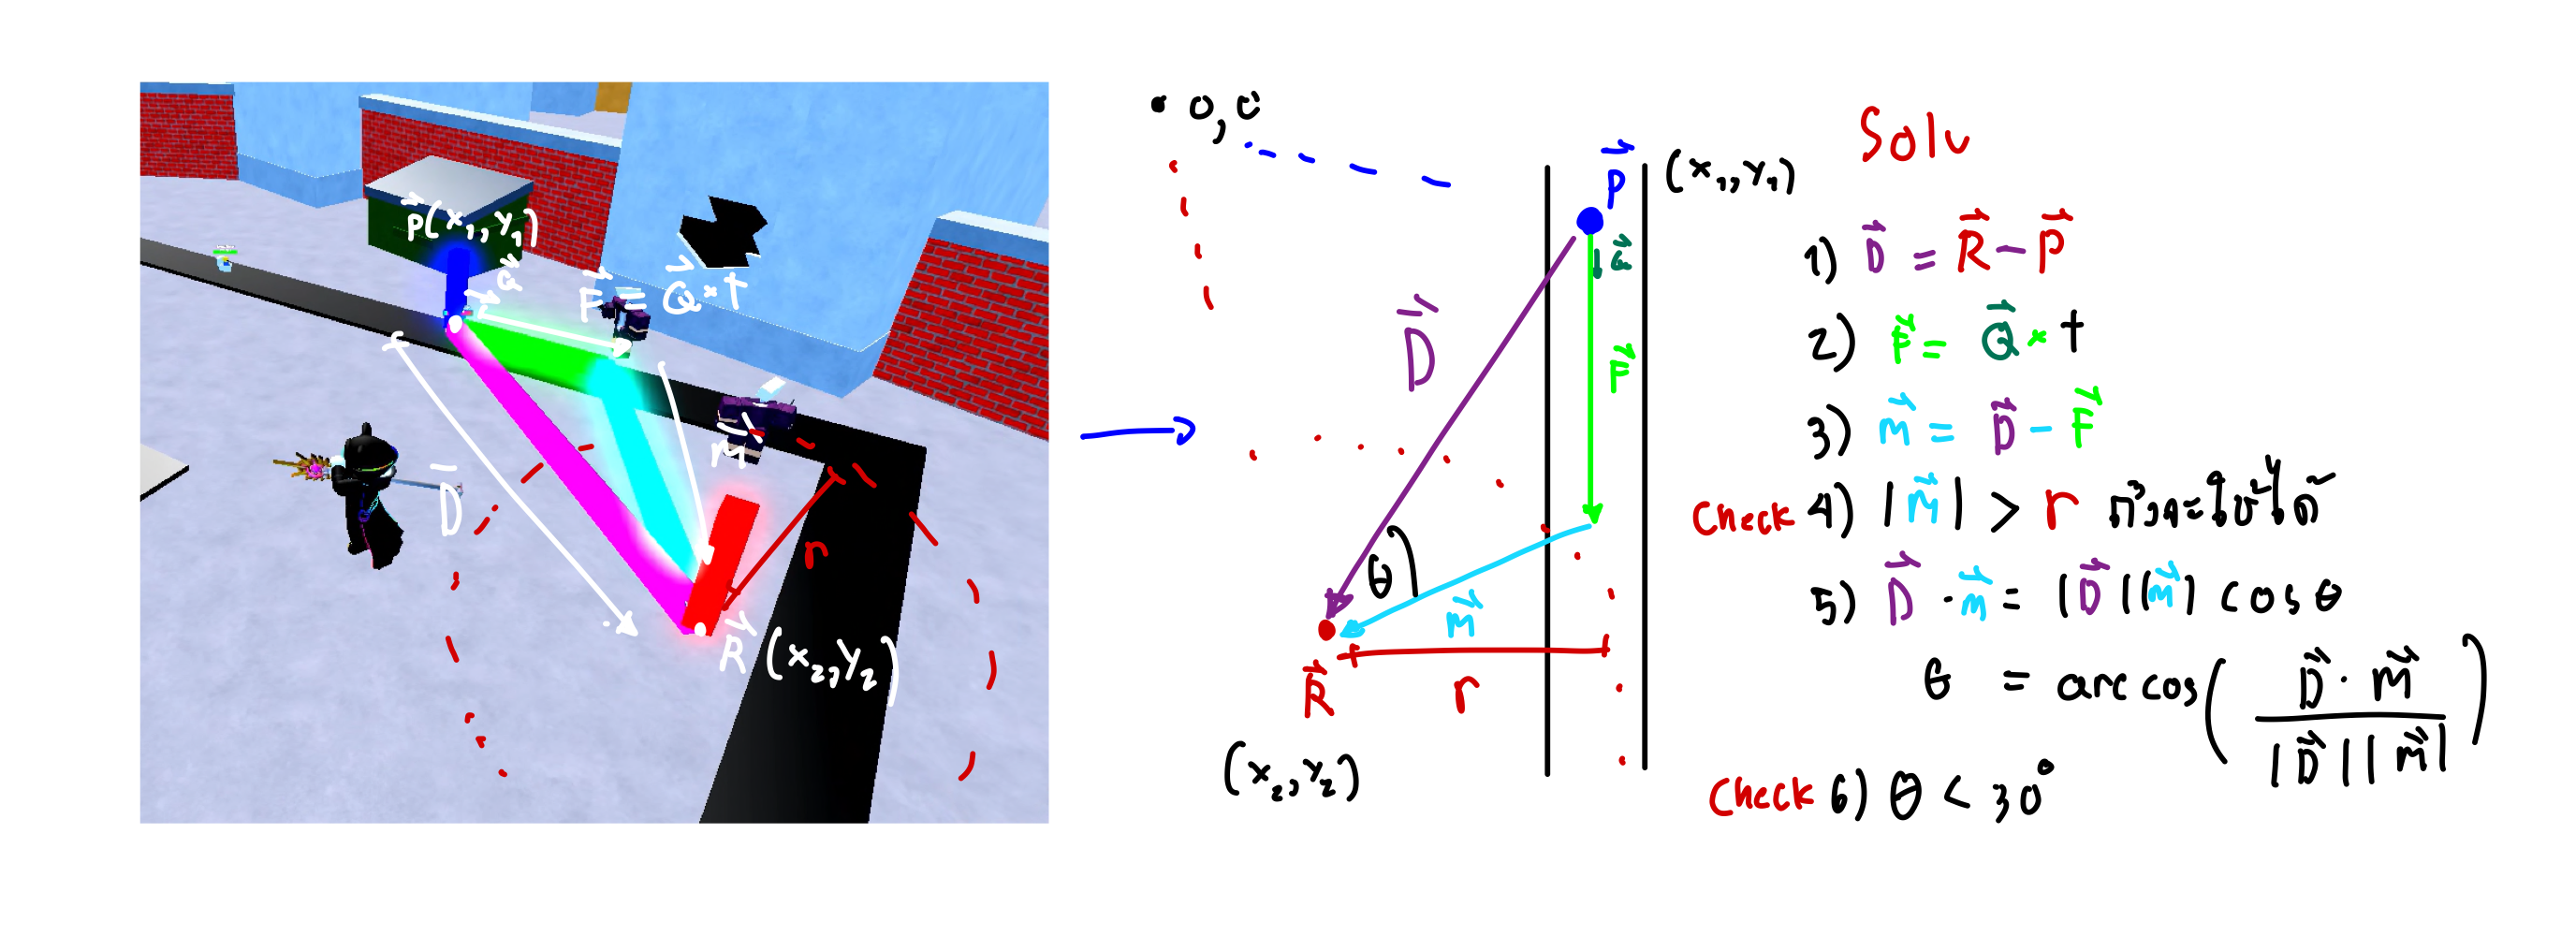 P⃗(x₁, y₁)
Q⃗
F⃗ = Q⃗ × t
D⃗
m⃗
r
R⃗ (x₂, y₂)
0,0
P⃗ (x₁, y₁)
Q⃗
F⃗
D⃗
θ
m⃗
R⃗
r
(x₂, y₂)
Solv
1) D⃗ = R⃗ - P⃗
2) F⃗ = Q⃗ × t
3) m⃗ = D⃗ - F⃗
Check 4) |m⃗| > r
5) D⃗ · m⃗ = |D⃗||m⃗| cos θ
θ = arccos(D⃗ · m⃗ / |D⃗||m⃗|)
Check 6) θ < 30°